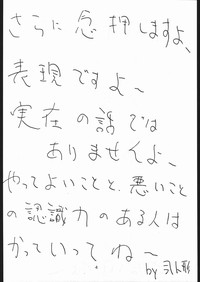 さらに念押しますよ、
表現ですよ〜
実在の話では
ありませんよ、
やってよいことと、悪いこと
の認識力のある人は
かっていってね〜
by